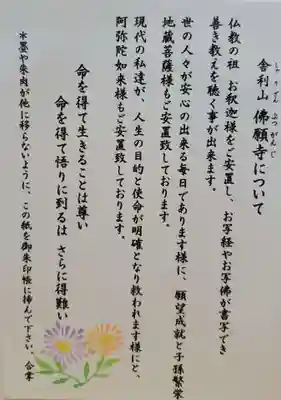 舎利山 佛願寺について
しゃりざん ぶつがんじ
仏教の祖 お釈迦様をご安置し、お写経やお写佛が書写でき
善き教えを聴く事が出来ます。
世の人々が安心の出来る毎日であります様に、願望成就と子孫繁栄
地蔵菩薩様もご安置致しております。
現代の私達が、人生の目的と使命が明確となり救われます様にと、
阿弥陀如来様もご安置致しております。
命を得て生きることは尊い
命を得て悟りに到るは さらに得難い
*墨や朱肉が他に移らないように、この紙を御朱印帳に挿んで下さい。合掌